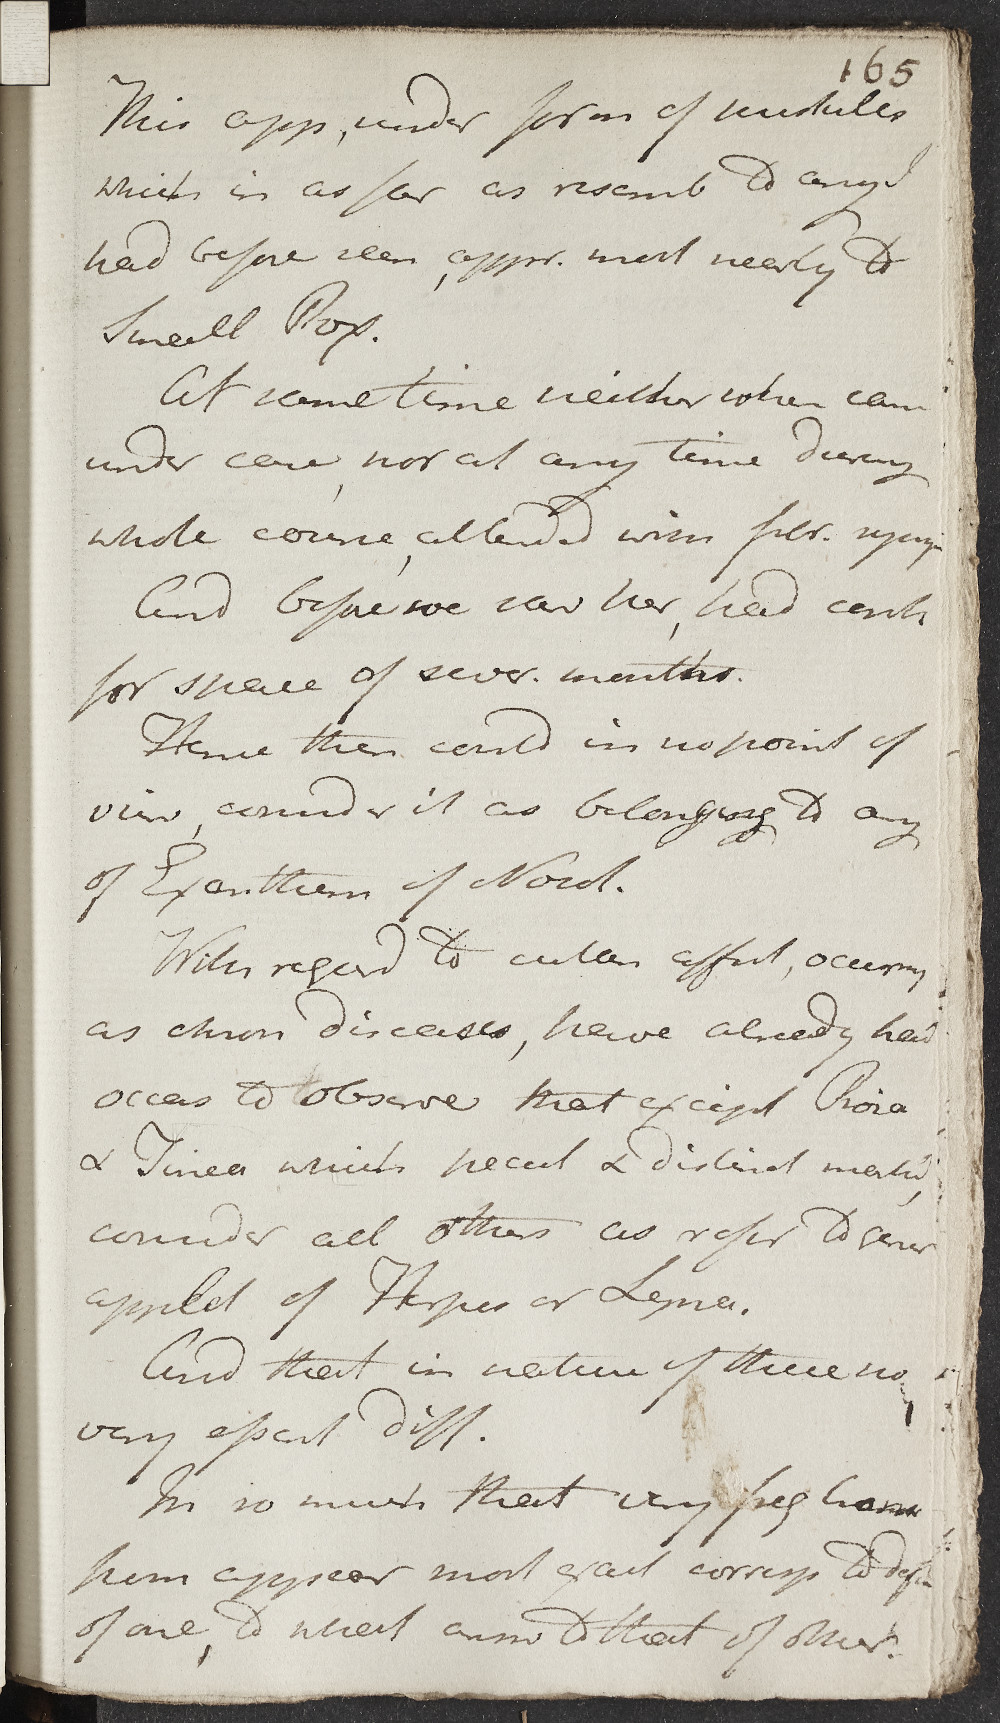 165
This app, under form of pustules
which in as far as resemb to any I
had before seen, appr. most nearly to
Small Pox.
At same time neither when came
under care, nor at any time during
whole course, attended with febr.
And before we saw her, had contin
for space of sever. months.
Hence then could in no point of
view, consider it as belonging to any
of Exanthem of Nosol.
With regard to cutan affect, occurring
as chron diseases, have already had
occas to observe that except Psora
& Tinea which pecul & distinct mark'd,
consider all others as refer to gener
appelat of Herpes or Lepra.
And that in nature of these no
very essent diff.
In so much that very freq
from appear most exact corresp to defin
of one, to what answ to that of other.